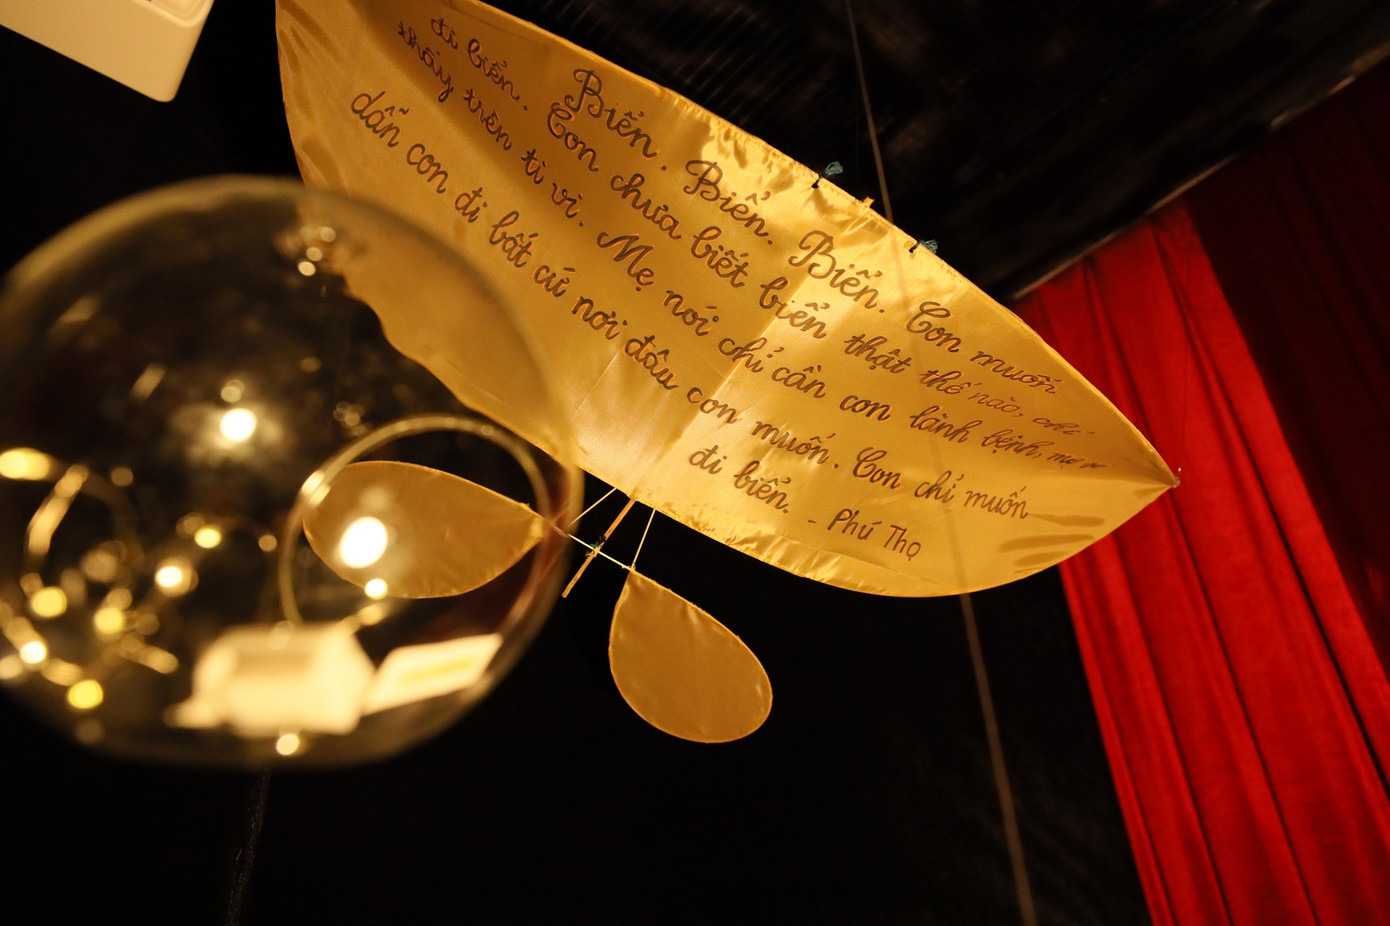 Biển. Biển. Biển. Con muốn
đi biển. Con chưa biết biển thật thế nào, chỉ
thấy trên ti vi. Mẹ nói chỉ cần con lành bệnh, mẹ
dẫn con đi bất cứ nơi đâu con muốn. Con chỉ muốn
đi biển. - Phú Thọ